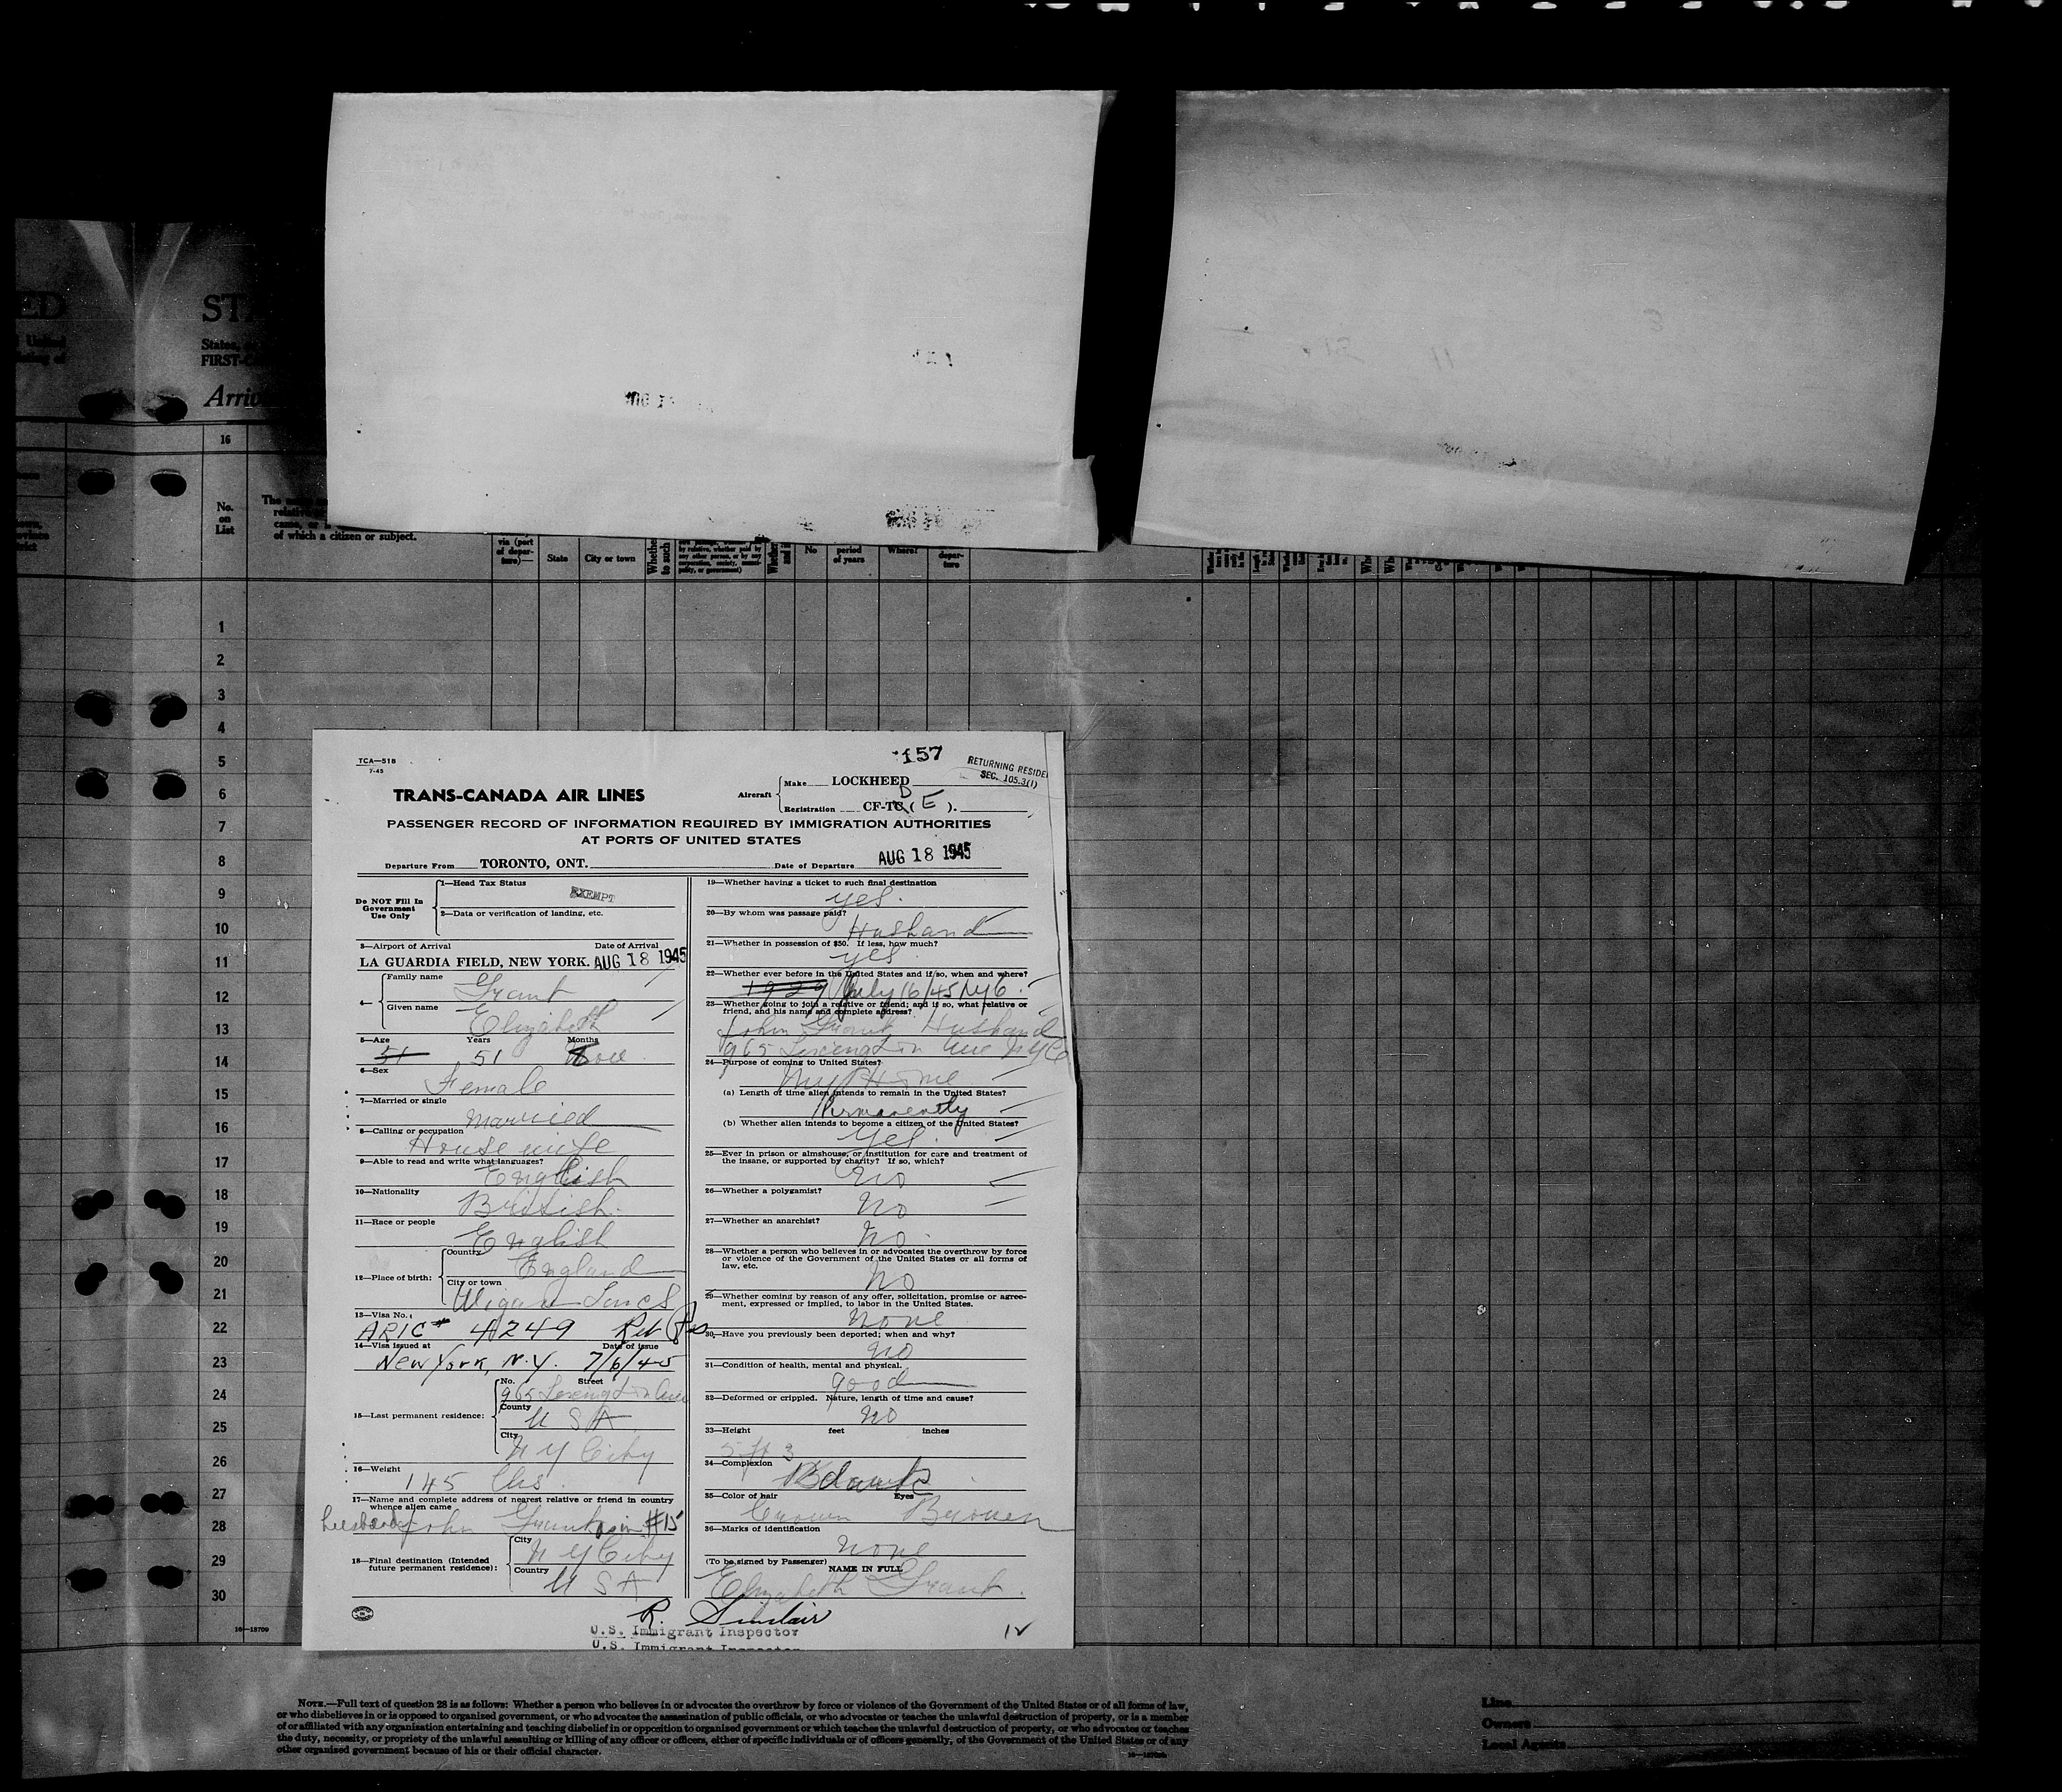 ED
United
STA
States, or
FIRST-C
Arriv
16
No.
on
List
of which a citizen or subject.
via (port
of depar-
ture)—
State
City or town
Whether
to such
by relative, whether paid by
any other person, or by any
corporation, society, munici-
pality, or government)
No
period
of years
Where?
depar-
ture
1
2
3
4
5
6
7
8
9
10
11
12
13
14
15
16
17
18
19
20
21
22
23
24
25
26
27
28
29
30
16—18709
TCA—518
7-45
157
RETURNING RESIDE
SEC. 105.3(1)
TRANS-CANADA AIR LINES
Aircraft
Make LOCKHEED
Registration CF-TC D ( E ).
PASSENGER RECORD OF INFORMATION REQUIRED BY IMMIGRATION AUTHORITIES
AT PORTS OF UNITED STATES
Departure From TORONTO, ONT. Date of Departure AUG 18 1945
Do NOT Fill In
Government
Use Only
1—Head Tax Status
EXEMPT
2—Data or verification of landing, etc.
3—Airport of Arrival Date of Arrival
LA GUARDIA FIELD, NEW YORK. AUG 18 1945
4— Family name
Grant
Given name
Elizabeth
5—Age Years Months
51 51 None
6—Sex
Female
7—Married or single
Married
8—Calling or occupation
Housewife
9—Able to read and write what languages?
English
10—Nationality
British
11—Race or people
English
12—Place of birth: Country
England
City or town
Wigan Lancs
13—Visa No.
ARIC# 4249 Ret
14—Visa issued at Date of issue
New York, N.Y. 7/6/45
15—Last permanent residence: No. Street
965 Lexington Ave
County
U S A
City
N Y City
16—Weight
145 lbs
17—Name and complete address of nearest relative or friend in country
whence alien came
husband John Grant as in #15
18—Final destination (Intended
future permanent residence):
City
N Y City
Country
U S A
19—Whether having a ticket to such final destination
yes.
20—By whom was passage paid?
Husband
21—Whether in possession of $50. If less, how much?
yes
22—Whether ever before in the United States and if so, when and where?
1929 July 16/45 NYC
23—Whether going to join a relative or friend; and if so, what relative or
friend, and his name and complete address?
John Grant Husband
965 Lexington Ave N Y C
24—Purpose of coming to United States?
My Home
(a) Length of time alien intends to remain in the United States?
Permanently
(b) Whether alien intends to become a citizen of the United States?
Yes.
25—Ever in prison or almshouse, or institution for care and treatment of
the insane, or supported by charity? If so, which?
No
26—Whether a polygamist?
No
27—Whether an anarchist?
No.
28—Whether a person who believes in or advocates the overthrow by force
or violence of the Government of the United States or all forms of
law, etc.
No
29—Whether coming by reason of any offer, solicitation, promise or agree-
ment, expressed or implied, to labor in the United States.
None
30—Have you previously been deported; when and why?
No
31—Condition of health, mental and physical.
good
32—Deformed or crippled. Nature, length of time and cause?
No
33—Height feet inches
5 ft 3
34—Complexion
dark
35—Color of hair Eyes
Brown Brown
36—Marks of identification
None
(To be signed by Passenger) NAME IN FULL
Elizabeth Grant.
R. Sinclair
U.S. Immigrant Inspector
U.S. Immigrant Inspector
NOTE.—Full text of question 28 is as follows: Whether a person who believes in or advocates the overthrow by force or violence of the Government of the United States or of all forms of law,
or who disbelieves in or is opposed to organized government, or who advocates the assassination of public officials, or who advocates or teaches the unlawful destruction of property, or is a member
of or affiliated with any organization entertaining and teaching disbelief in or opposition to organized government or which teaches the unlawful destruction of property, or who advocates or teaches
the duty, necessity, or propriety of the unlawful assaulting or killing of any officer or officers, either of specific individuals or of officers generally, of the Government of the United States or of any
other organized government because of his or their official character.
Line
Owners
Local Agents